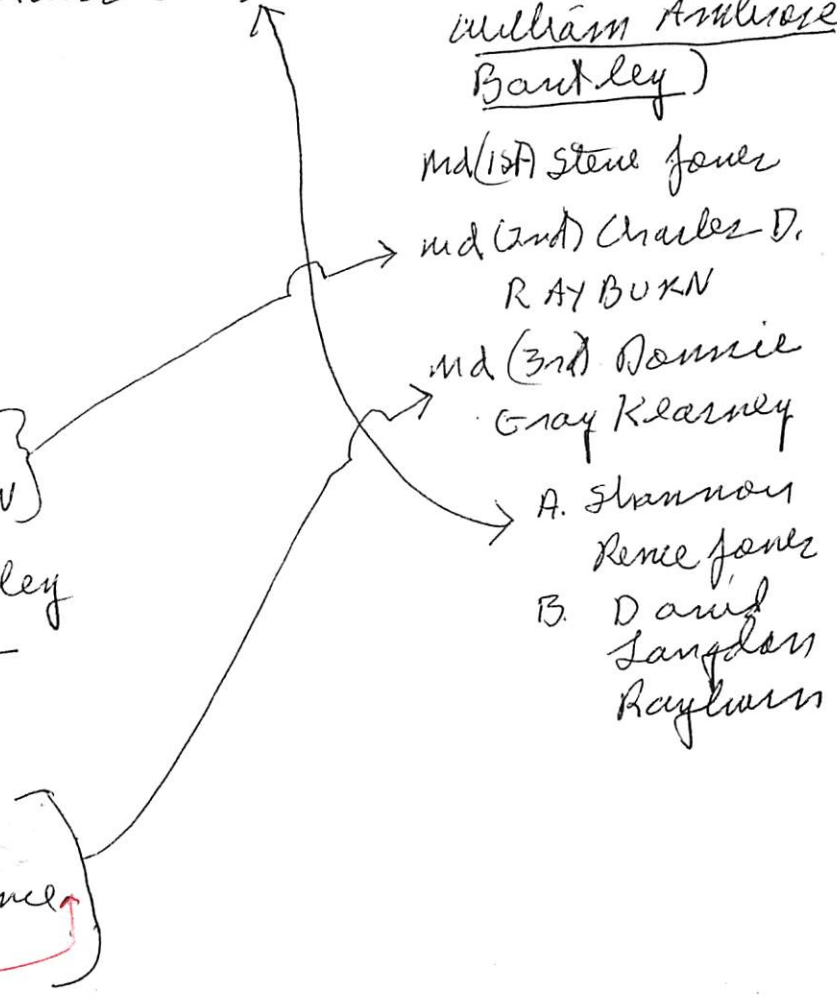 William Ambrose
Bartley)
md (1st) Steve Jones
md (2nd) Charles D.
RAYBURN
md (3rd) Donnie
Gray Kearney
A. Shannon
Renee Jones
B. David
Langdon
Rayburn
ley